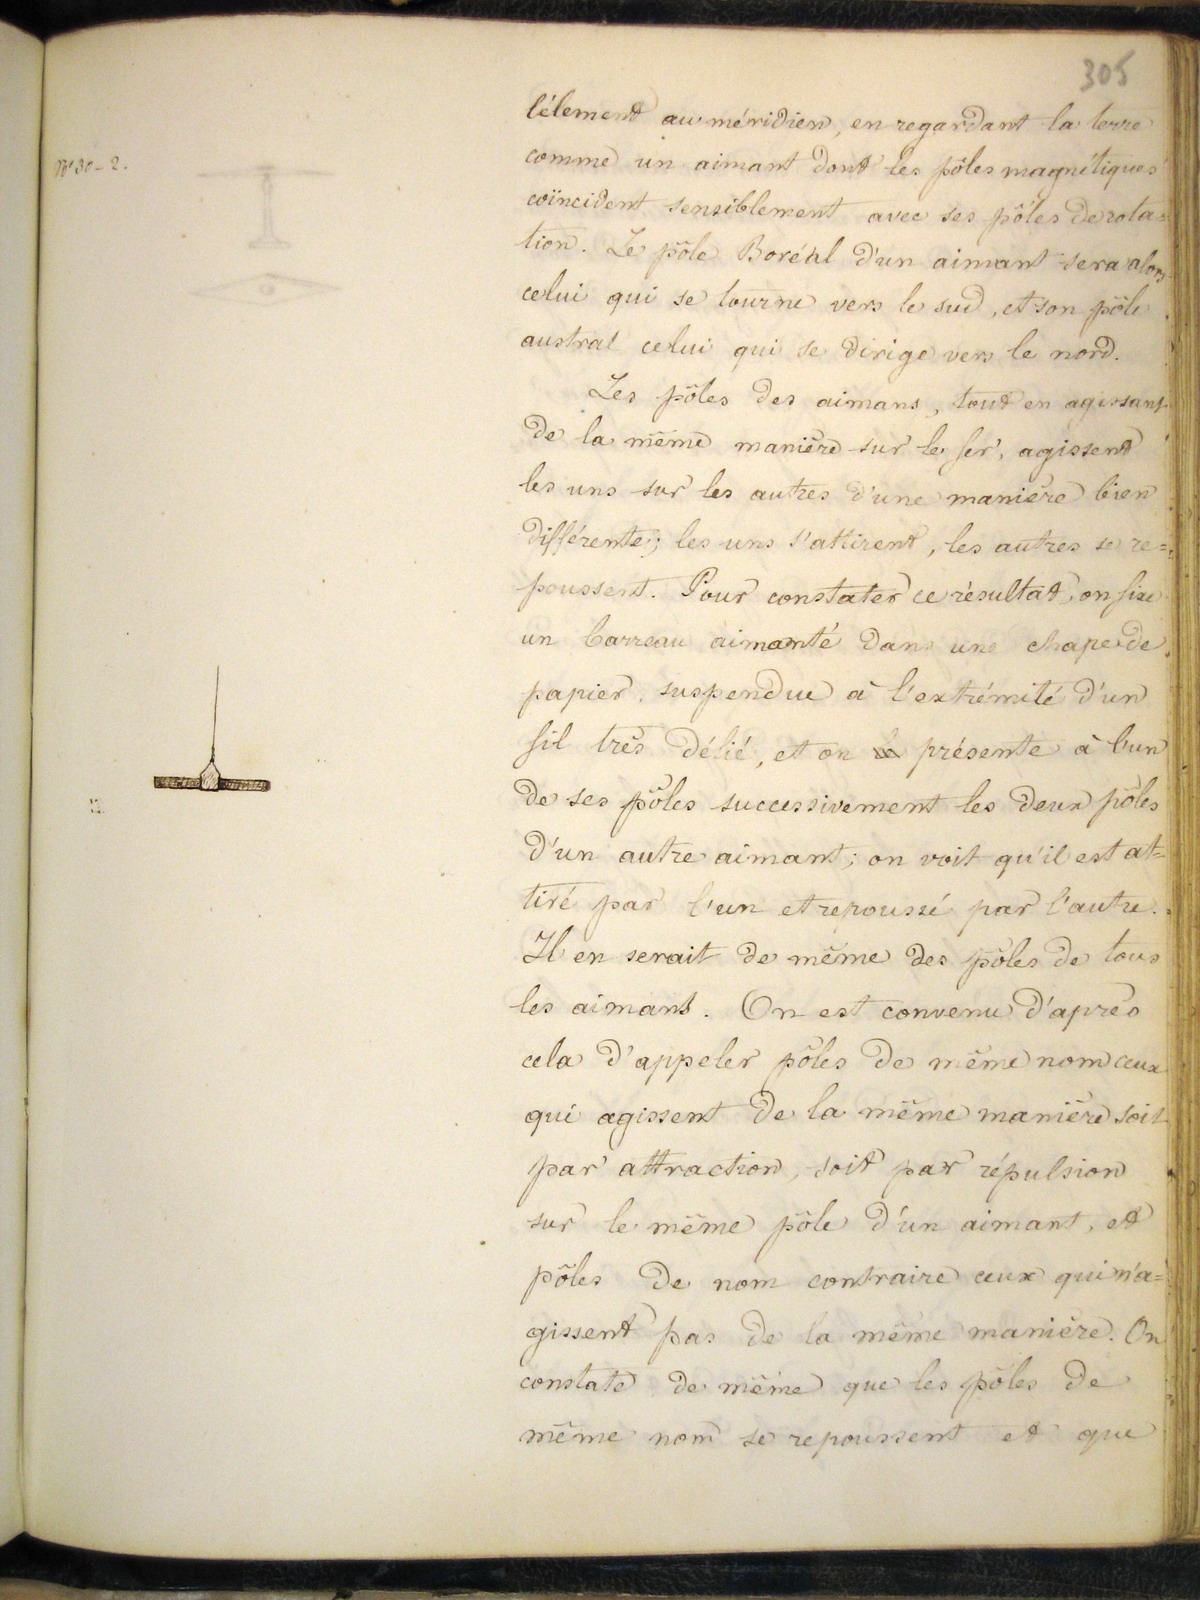 305
N° 30_2.
lélement au méridien, en regardant la terre
comme un aimant dont les pôles magnétiques
coïncident sensiblement avec ses pôles de rota=
tion. Le pôle Boréal d'un aimant sera alors
celui qui se tourne vers le sud, et son pôle
austral celui qui se dirige vers le nord.
Les pôles des aimans, tout en agissant
de la même manière sur le fer, agissent
les uns sur les autres d'une manière bien
différente; les uns s'attirent, les autres se re=
poussent. Pour constater ce résultat, on fixe
un barreau aimanté dans une chape de
papier, suspendue à l'extrémité d'un
fil très délié, et on présente à l'un
de ses pôles successivement les deux pôles
d'un autre aimant; on voit qu'il est at=
tiré par l'un et repoussé par l'autre.
Il en serait de même des pôles de tous
les aimans. On est convenu d'après
cela d'appeler pôles de même nom ceux
qui agissent de la même manière soit
par attraction, soit par répulsion
sur le même pôle d'un aimant, et
pôles de nom contraire ceux qui n'a=
gissent pas de la même manière. On
constate de même que les pôles de
même nom se repoussent et que